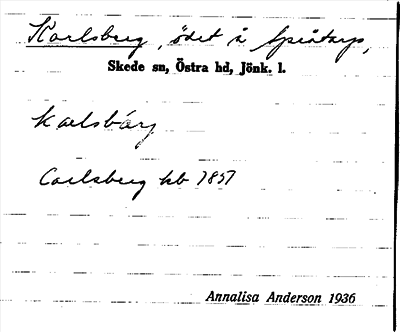 Karlsberg, ödet å Spåtorp,
Skede sn, Östra hd, Jönk. l.
kalsbärj
Carlsberg kb 1857
Annalisa Anderson 1936